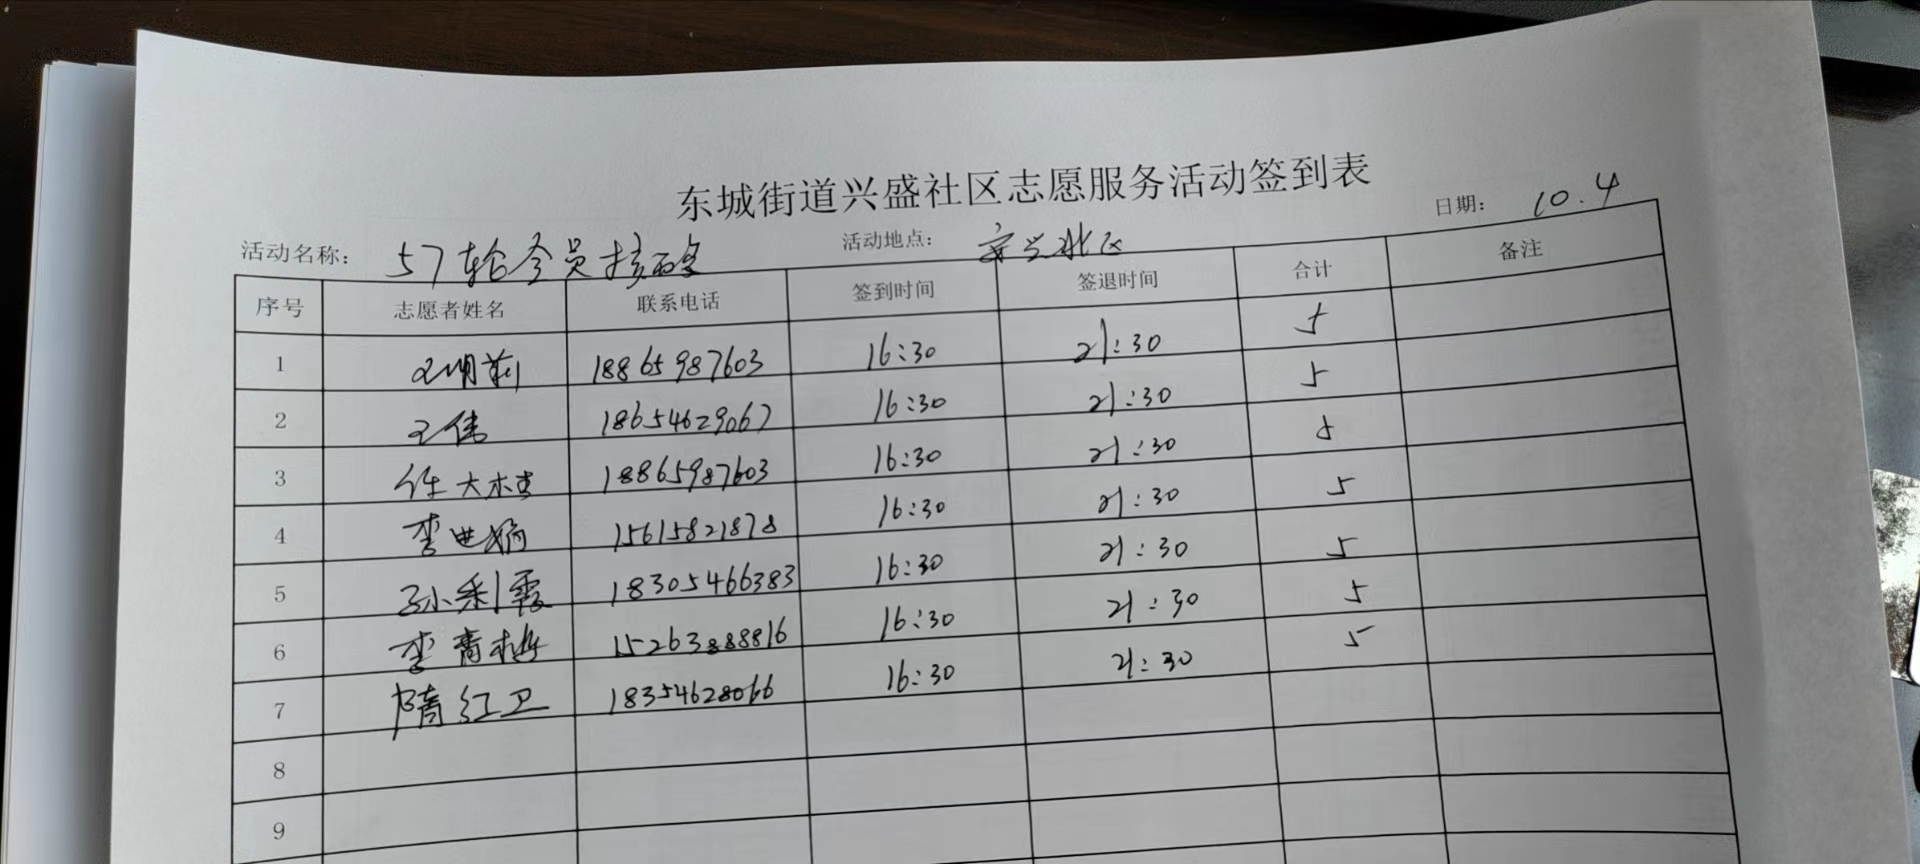 东城街道兴盛社区志愿服务活动签到表
活动名称： 57轮全员核酸 活动地点： 安兴北区 日期： 10.4
序号 志愿者姓名 联系电话 签到时间 签退时间 合计 备注
1 王明莉 18865987603 16:30 21:30 5
2 王倩 18654629067 16:30 21:30 5
3 任大杰 18865987603 16:30 21:30 5
4 李世娟 15615821878 16:30 21:30 5
5 孙利霞 18305466383 16:30 21:30 5
6 李青梅 15263888816 16:30 21:30 5
7 隋红卫 18354628066 16:30 21:30 5
8
9